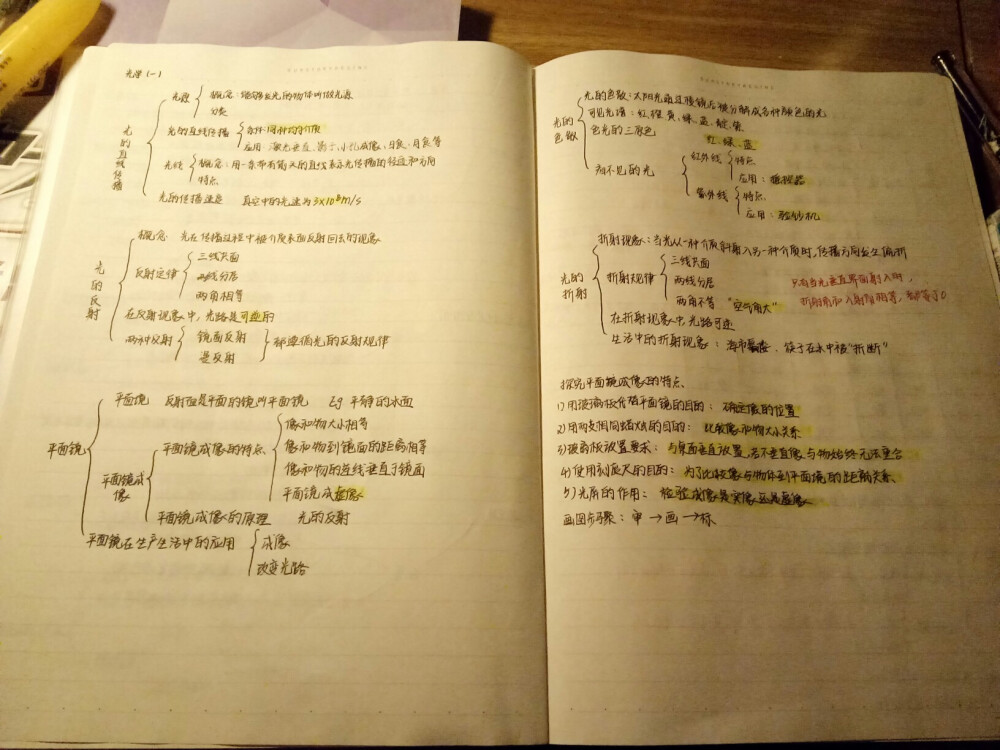 光学(一)
光的直线传播
光源
概念：能够发光的物体叫做光源
分类
光的直线传播
条件：同种均匀介质
应用：激光准直、影子、小孔成像、日食、月食等
光线
概念：用一条带有箭头的直线表示光传播的径迹和方向
特点
光的传播速度 真空中的光速为3×10⁸m/s
光的反射
概念：光在传播过程中被介质表面反射回去的现象
反射定律
三线共面
两线分居
两角相等
在反射现象中，光路是可逆的
两种反射
镜面反射
漫反射
都遵循光的反射规律
平面镜
平面镜 反射面是平面的镜叫平面镜 Eg 平静的水面
平面镜成像
平面镜成像的特点
像和物大小相等
像和物到镜面的距离相等
像和物的连线垂直于镜面
平面镜成虚像
平面镜成像的原理 光的反射
平面镜在生产生活中的应用
成像
改变光路
光的色散
光的色散：太阳光通过棱镜后被分解成各种颜色的光
可见光谱：红、橙、黄、绿、蓝、靛、紫
色光的三原色
红、绿、蓝
看不见的光
红外线
特点
应用：遥控器
紫外线
特点
应用：验钞机
光的折射
折射现象：当光从一种介质斜射入另一种介质时，传播方向发生偏折
折射规律
三线共面
两线分居
两角不等 “空气角大”
只有当光垂直界面射入时，
折射角和入射角相等，都等于0
在折射现象中，光路可逆
生活中的折射现象：海市蜃楼、筷子在水中被“折断”
探究平面镜成像的特点
1)用玻璃板代替平面镜的目的：确定像的位置
2)用两支相同蜡烛的目的：比较像和物大小关系
3)玻璃板放置要求：与桌面垂直放置，若不垂直像与物始终无法重合
4)使用刻度尺的目的：为了比较像与物体到平面镜的距离关系
5)光屏的作用：检验成像是实像还是虚像
画图步骤：审→画→标